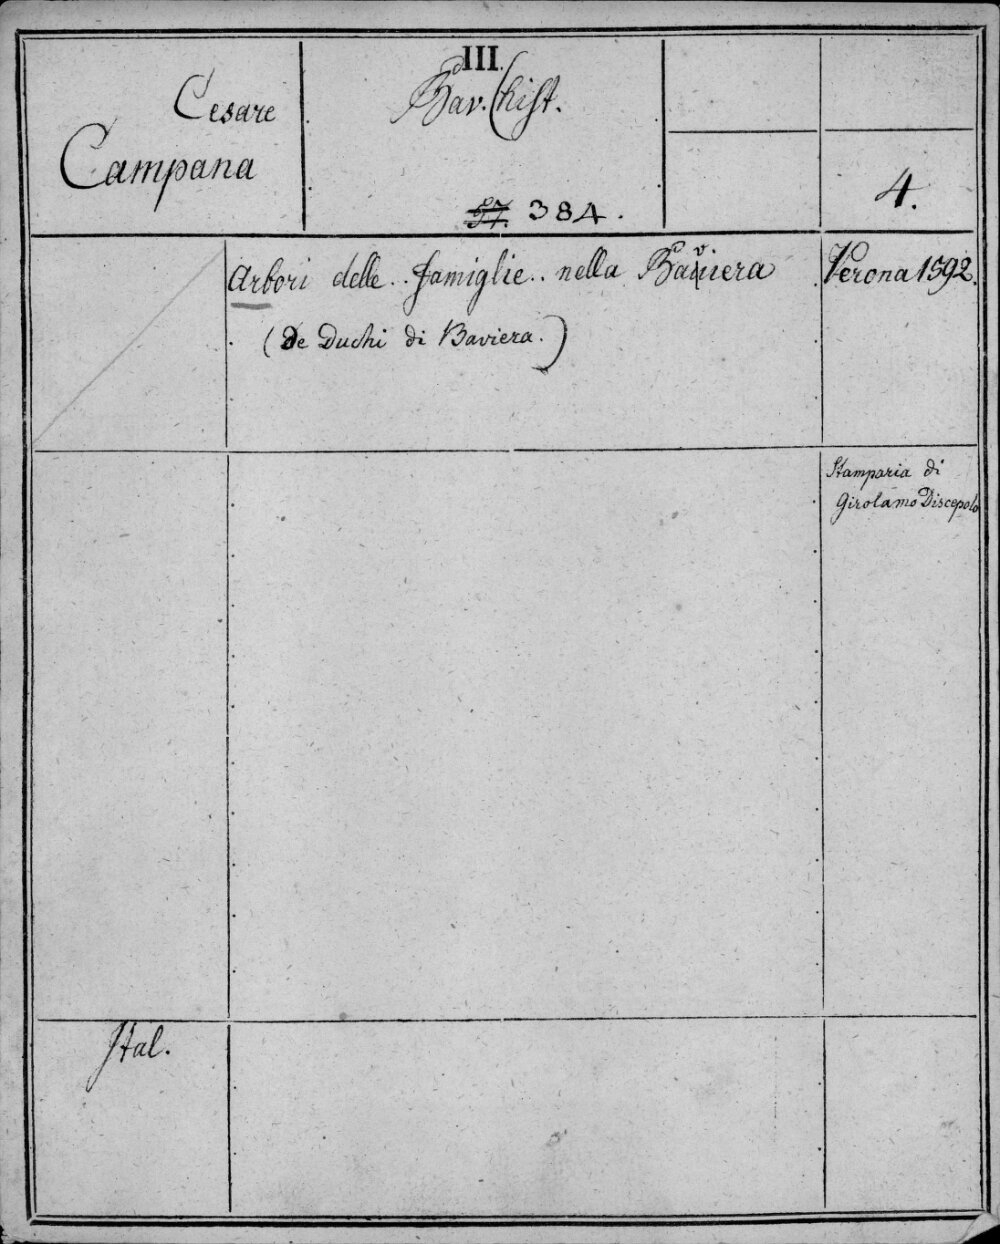 Cesare
Campana
III.
Bav. hist.
57. 384.
4.
Arbori delle .. famiglie .. nella Baviera
(De Duchi di Baviera.)
Verona 1592.
Stamparia di
Girolamo Discepolo
Ital.